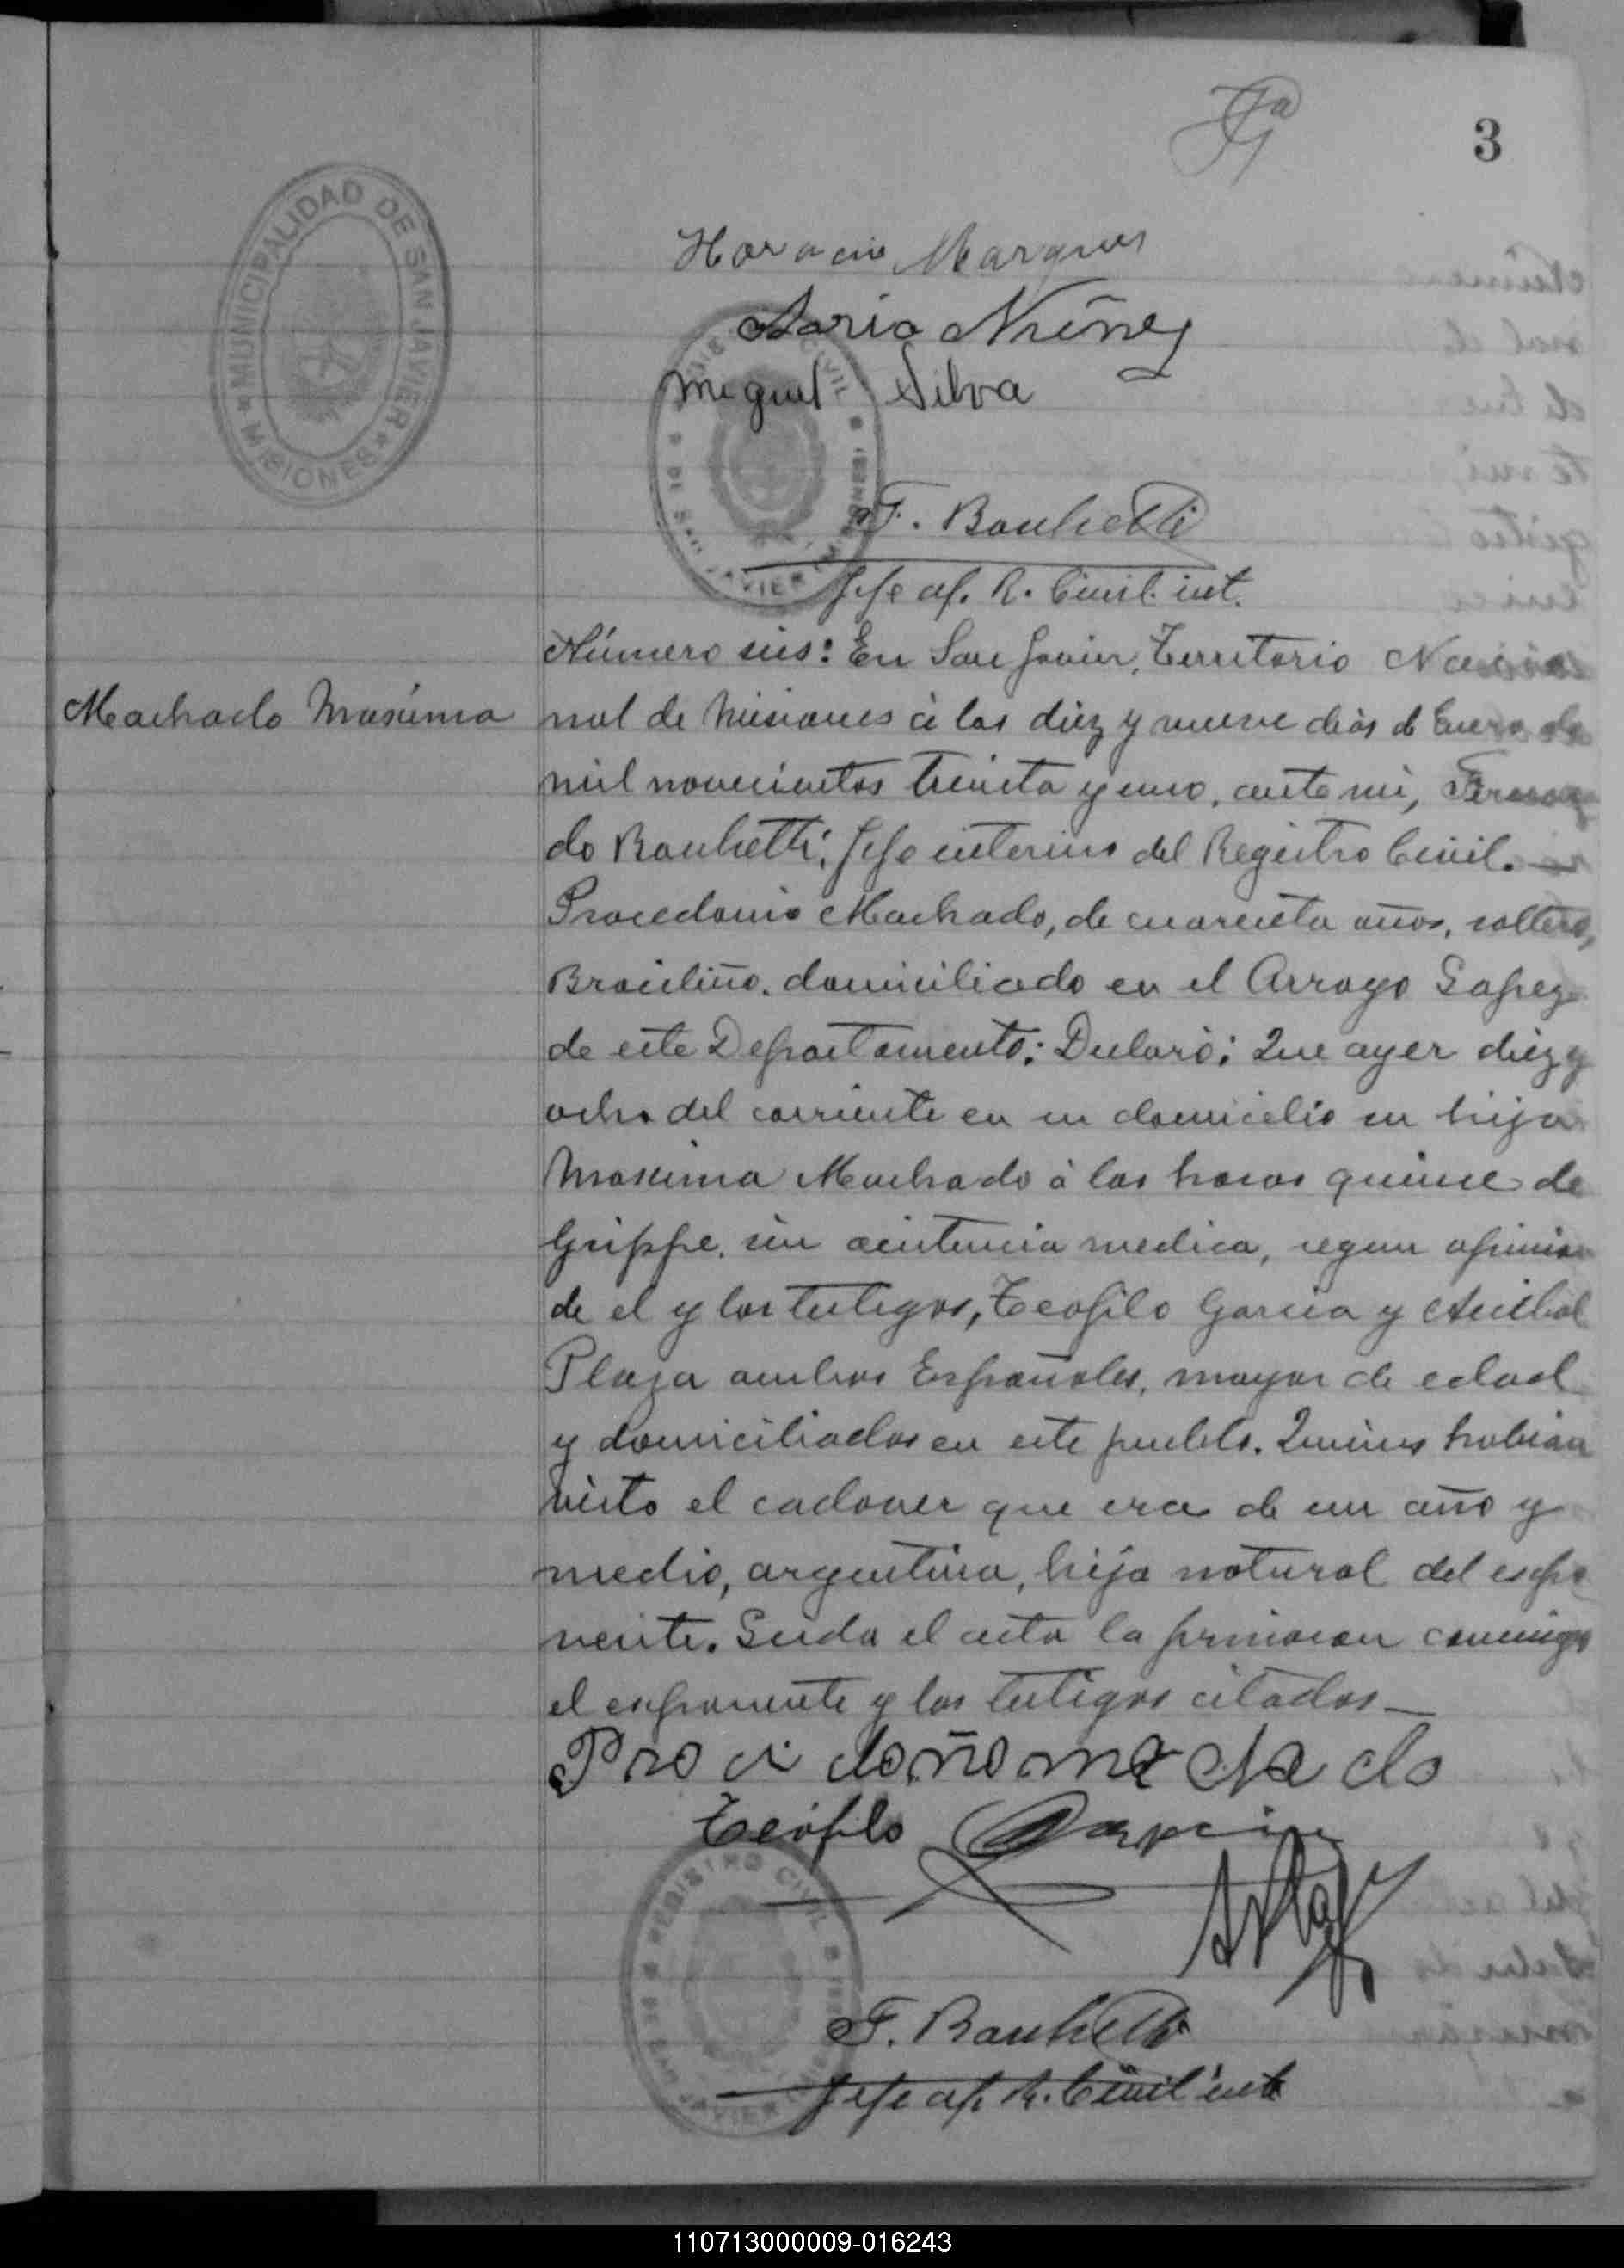 3
MUNICIPALIDAD DE SAN JAVIER
MISIONES
Horacio Marques
Dario Nuñez
Miguel Silva
F. Bauhetti
Jefe of. R. Civil. int.
Machado Maxima
Número seis: En San Javier, Territorio Nacio
nal de Misiones á los diez y nueve dias de Enero de
mil novecientos treinta y uno, ante mi, Fernan
do Bauhetti, Jefe interino del Registro Civil.—
Procedonio Machado, de cuarenta años, soltero,
Brasiliño. domiciliado en el Arroyo Lopez
de este Departamento: Declaró: Que ayer diez y
ocho del corriente en su domicilio su hija
Maxima Machado á las horas quince de
Grippe. sin asistencia medica, segun opinion
de el y los testigos, Teofilo Garcia y Anibal
Plaza ambos Españoles, mayor de edad
y domiciliados en este pueblo. Quienes habian
visto el cadaver que era de un año y
medio, argentina, hija natural del expo
nente. Leida el acta la firmaron conmigo
el exponente y los testigos citados—
Prosidoño machado
Teofilo Garcia
A Plaza
REGISTRO CIVIL
DE SAN JAVIER
F. Bauhetti
Jefe of. R. Civil int
110713000009-016243